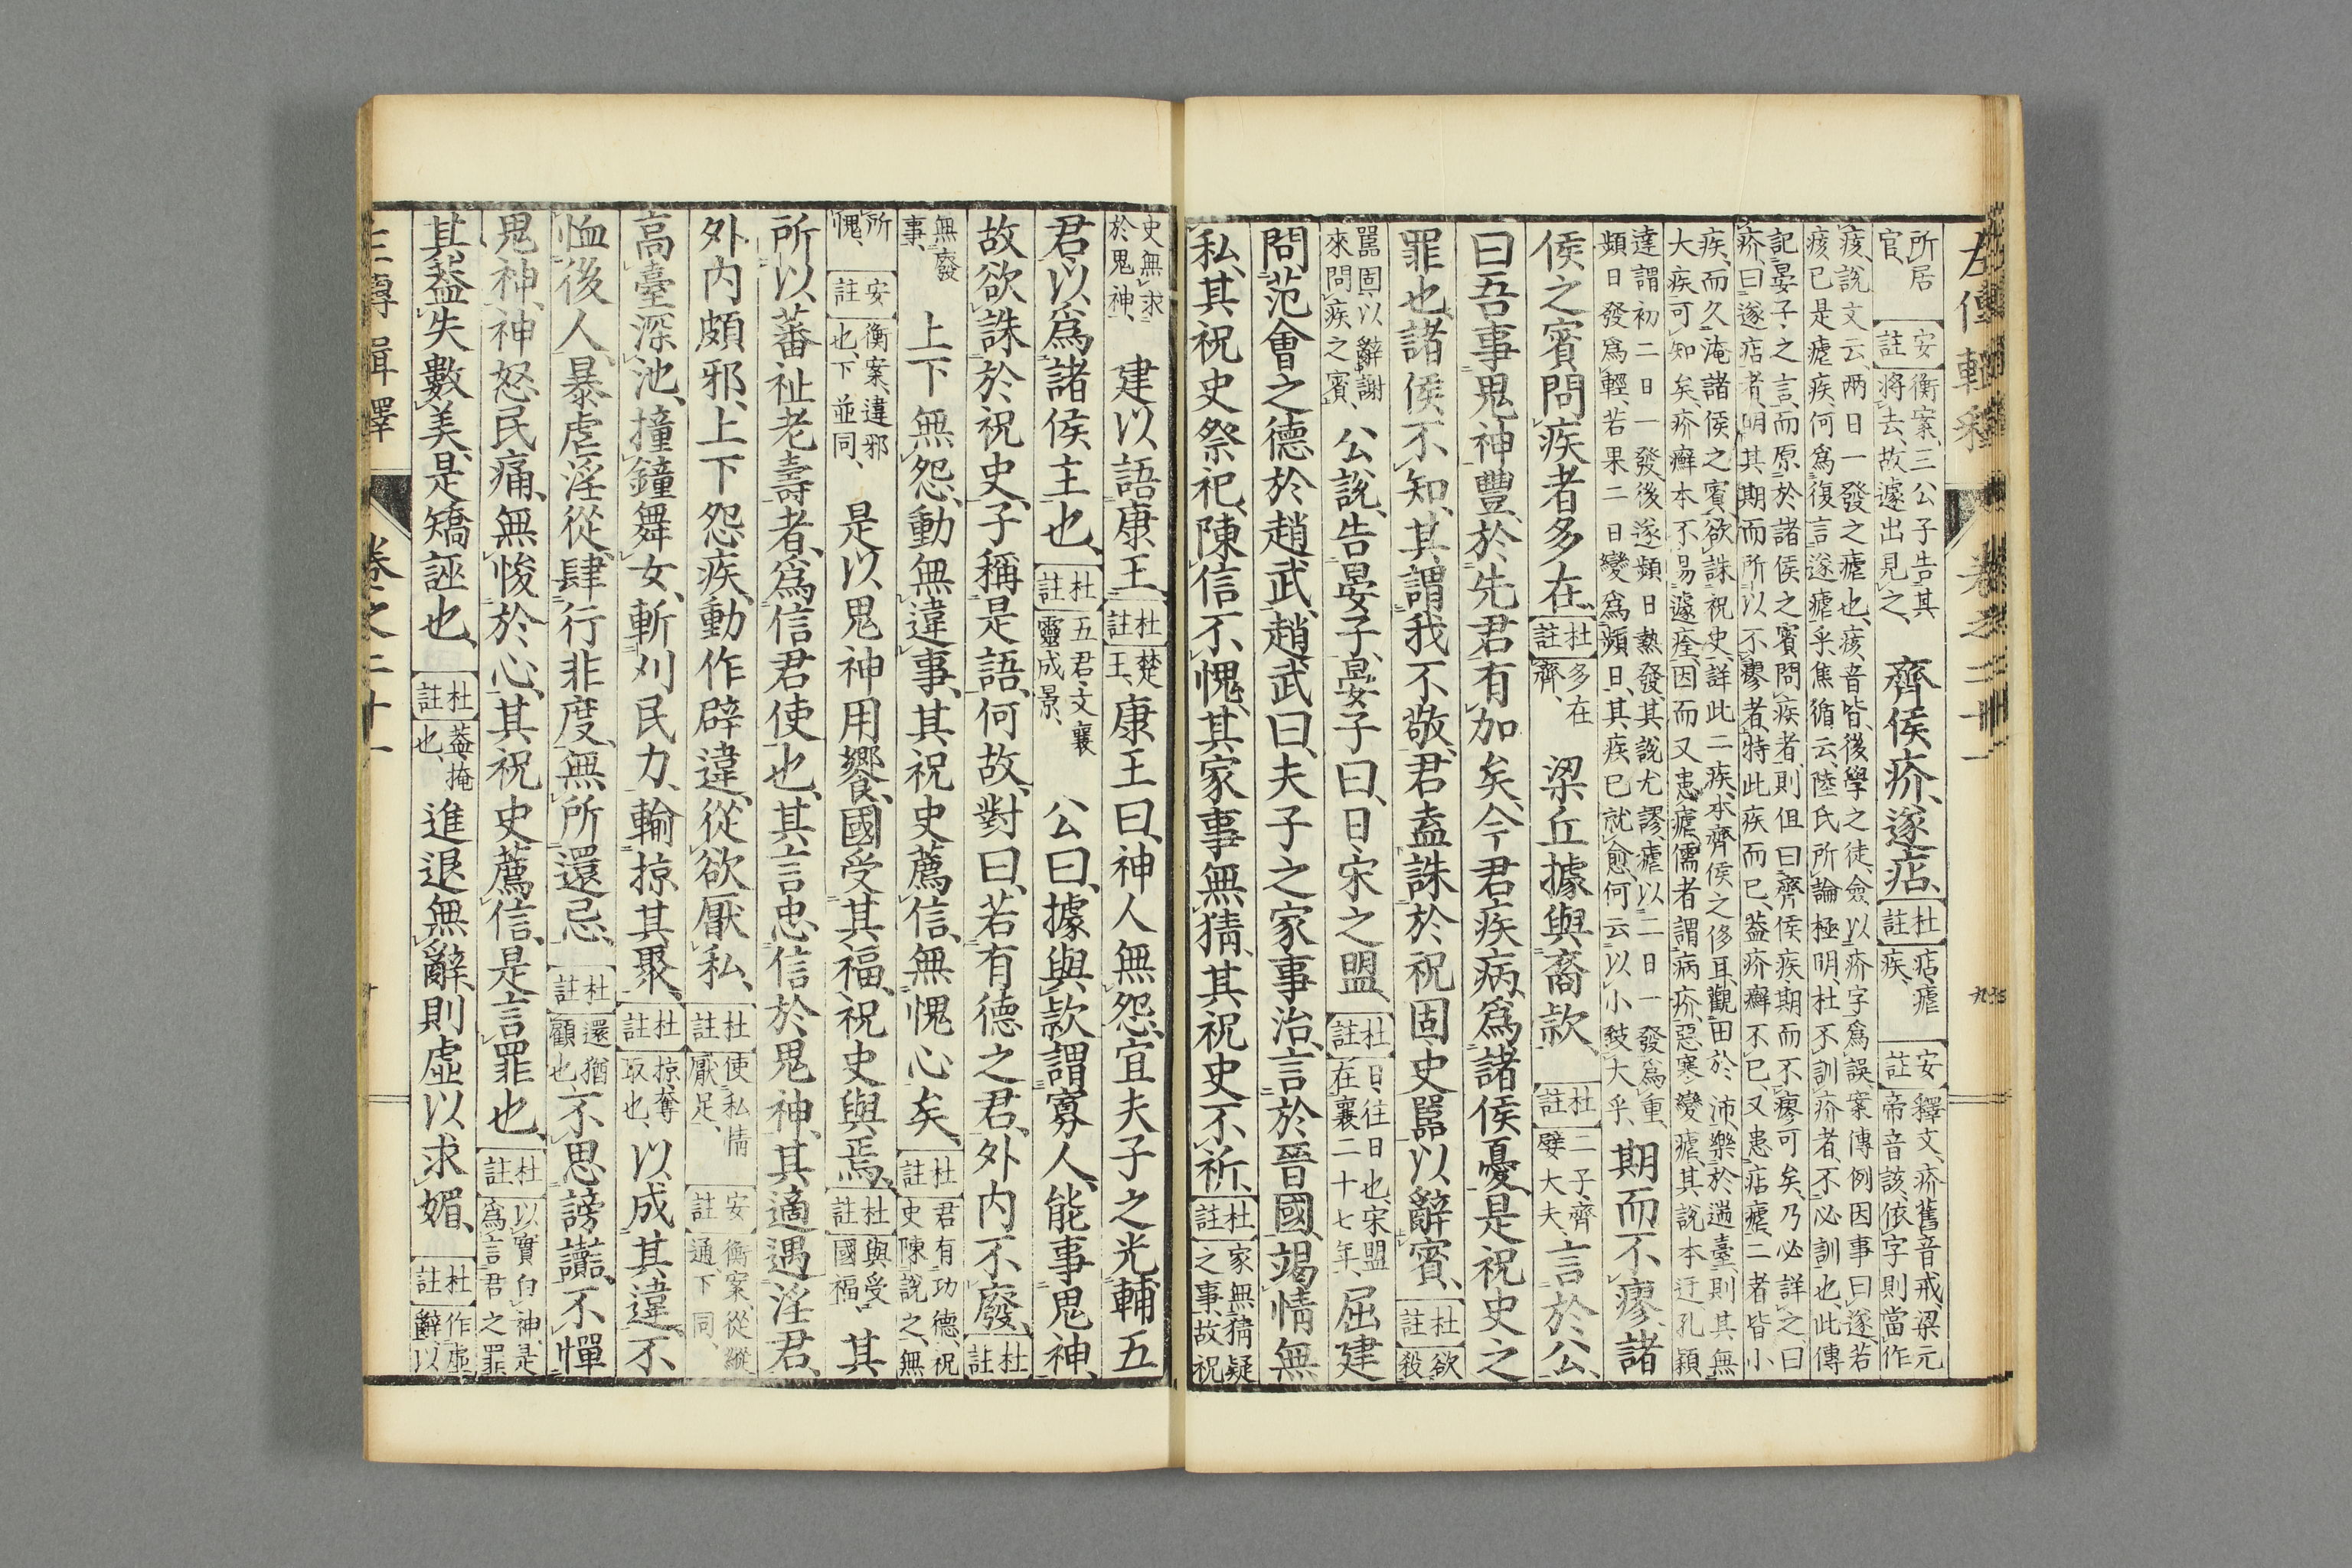 左傳輯釋 卷之二十一
所居官、安註衡案、三公子告其將去、故遽出見之、齊侯疥、遂痁、杜註痁瘧疾、安註釋文、疥舊音戒、梁元帝音該、依字則當作
痎、說文云、兩日一發之瘧也、痎、音皆、後學之徒、僉以疥字爲誤、案傳例因事曰遂、若痎已是瘧疾、何爲復言遂瘧乎、焦循云、陸氏所論極明、杜不訓疥者、不必訓也、此傳
記晏子之言、而原於諸侯之賓問疾者、則但曰齊侯疾、期而不瘳可矣、乃必詳之曰疥、曰遂痁者、明其期而所以不瘳者、特此疾而已、葢疥癬不已、又患痁瘧、二者皆小
疾、而久淹諸侯之賓、欲誅祝史、詳此二疾、本齊侯之侈耳、觀田於沛、樂於遄臺、則其無大疾可知矣、疥癬本不易遽痊、因而又患瘧、儒者謂病疥、惡寒變瘧、其說本迂、孔穎
達謂初二日一發、後遂頻日熱發、其說尤謬、瘧以二日一發爲重、頻日發爲輕、若果二日變爲頻日、其疾已就愈、何云以小致大乎、期而不瘳、諸
侯之賓問疾者多在、杜註多在齊、梁丘據與裔款、杜註二子齊嬖大夫、言於公、
曰吾事鬼神豐、於先君有加矣、今君疾病、爲諸侯憂、是祝史之
罪也、諸侯不知、其謂我不敬、君盍誅於祝固史嚚以辭賓、杜註欲殺
嚚固、以辭謝來問疾之賓、公說、告晏子、晏子曰、日宋之盟、杜註日、往日也、宋盟在襄二十七年、屈建
問范會之德於趙武、趙武曰、夫子之家事治、言於晉國、竭情無
私、其祝史祭祀、陳信不愧、其家事無猜、其祝史不祈、杜註家無猜疑之事、故祝
史無求於鬼神、建以語康王、杜註楚王、康王曰、神人無怨、宜夫子之光輔五
君、以爲諸侯主也、杜註五君、文襄靈成景、公曰、據與款謂寡人、能事鬼神、
故欲誅於祝史、子稱是語、何故、對曰、若有德之君、外內不廢、杜註
無廢事、上下無怨、動無違事、其祝史薦信、無愧心矣、杜註君有功德、祝史陳說之、無
所愧、安註衡案、違邪也、下並同、是以鬼神用饗、國受其福、祝史與焉、杜註與受國福、其
所以蕃祉老壽者、爲信君使也、其言忠信於鬼神、其適遇淫君、
外內頗邪、上下怨疾、動作辟違、從欲厭私、杜註使私情厭足、安註衡案、從縱通、下同、
高臺深池、撞鐘舞女、斬刈民力、輸掠其聚、杜註掠、奪取也、以成其違、不
恤後人、暴虐淫從、肆行非度、無所還忌、杜註還猶顧也、不思謗讟、不憚
鬼神、神怒民痛、無悛於心、其祝史薦信、是言罪也、杜註以實白神、是爲言君之罪
其葢失數美、是矯誣也、杜註葢、掩也、進退無辭、則虛以求媚、杜註作虛辭、以
左傳輯釋 卷之二十一